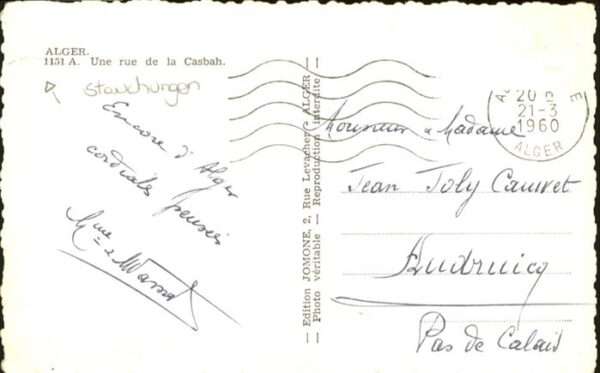 ALGER.
1151 A. Une rue de la Casbah.
Stauchungen
Encore d'Alger
cordiales pensées
Mme
— Edition JOMONE, 2, Rue Levacher - ALGER —
Photo véritable - Reproduction interdite
20
21-3
1960
ALGER
Monsieur & Madame
Jean Joly Cauvet
Audruicq
Pas de Calais